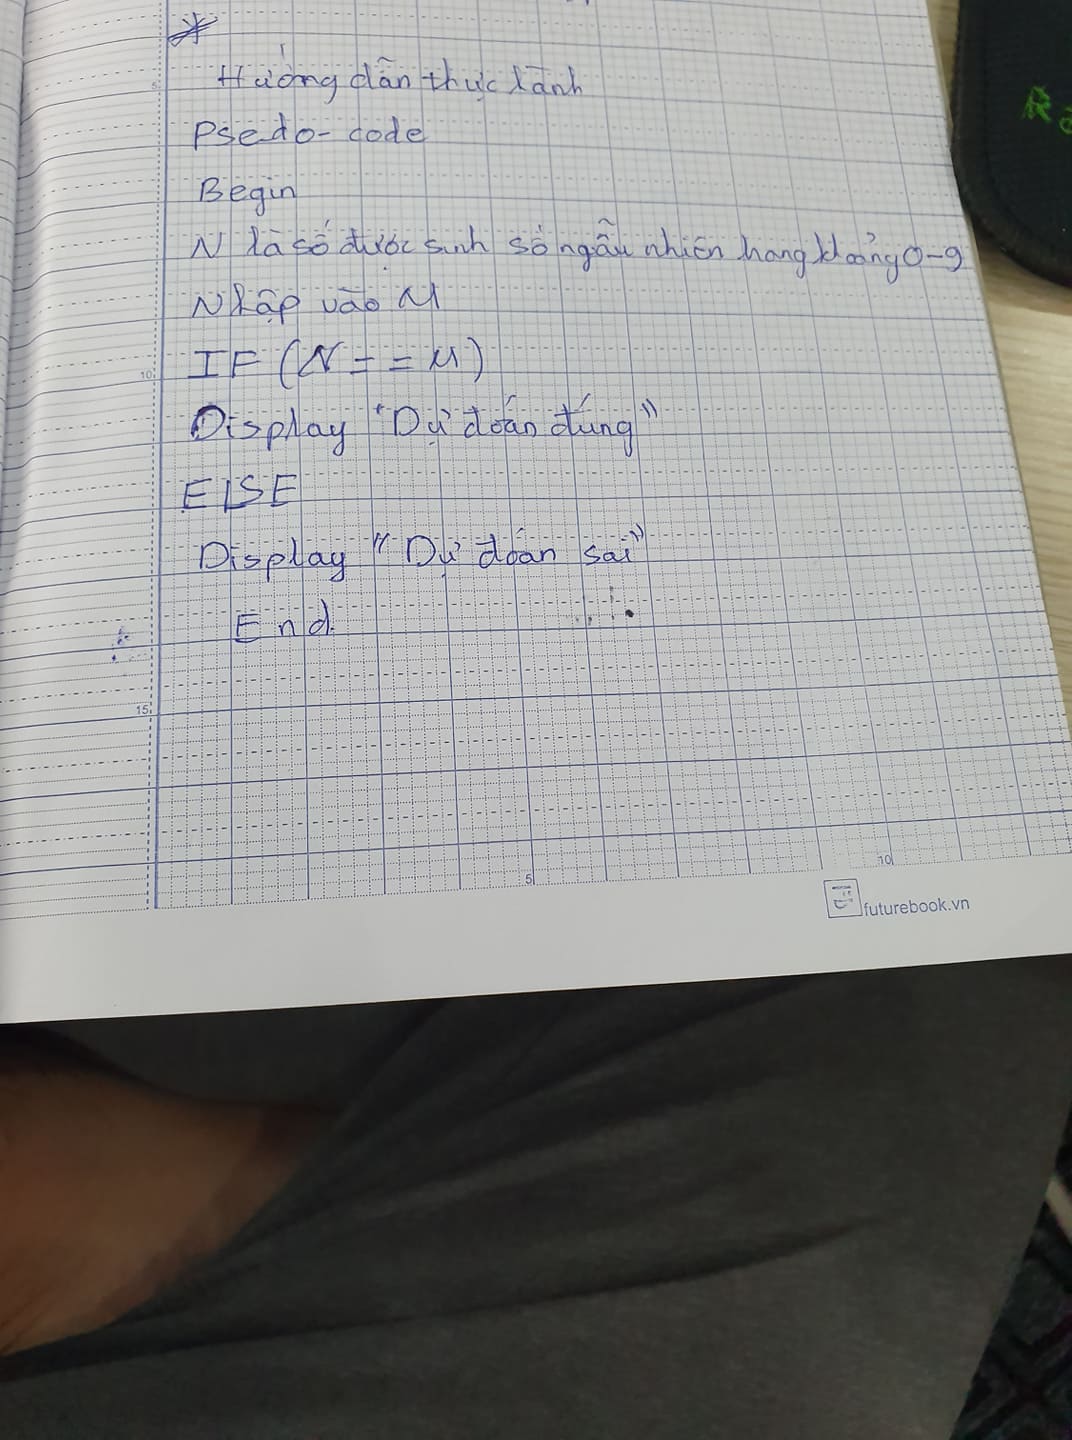 Hướng dẫn thực hành
Psedo-code
Begin
N là số được sinh số ngẫu nhiên trong khoảng 0-9
Nhập vào M
IF (N == M)
Display "Dự đoán đúng"
ELSE
Display "Dự đoán sai"
End.
10
15
5
10
futurebook.vn